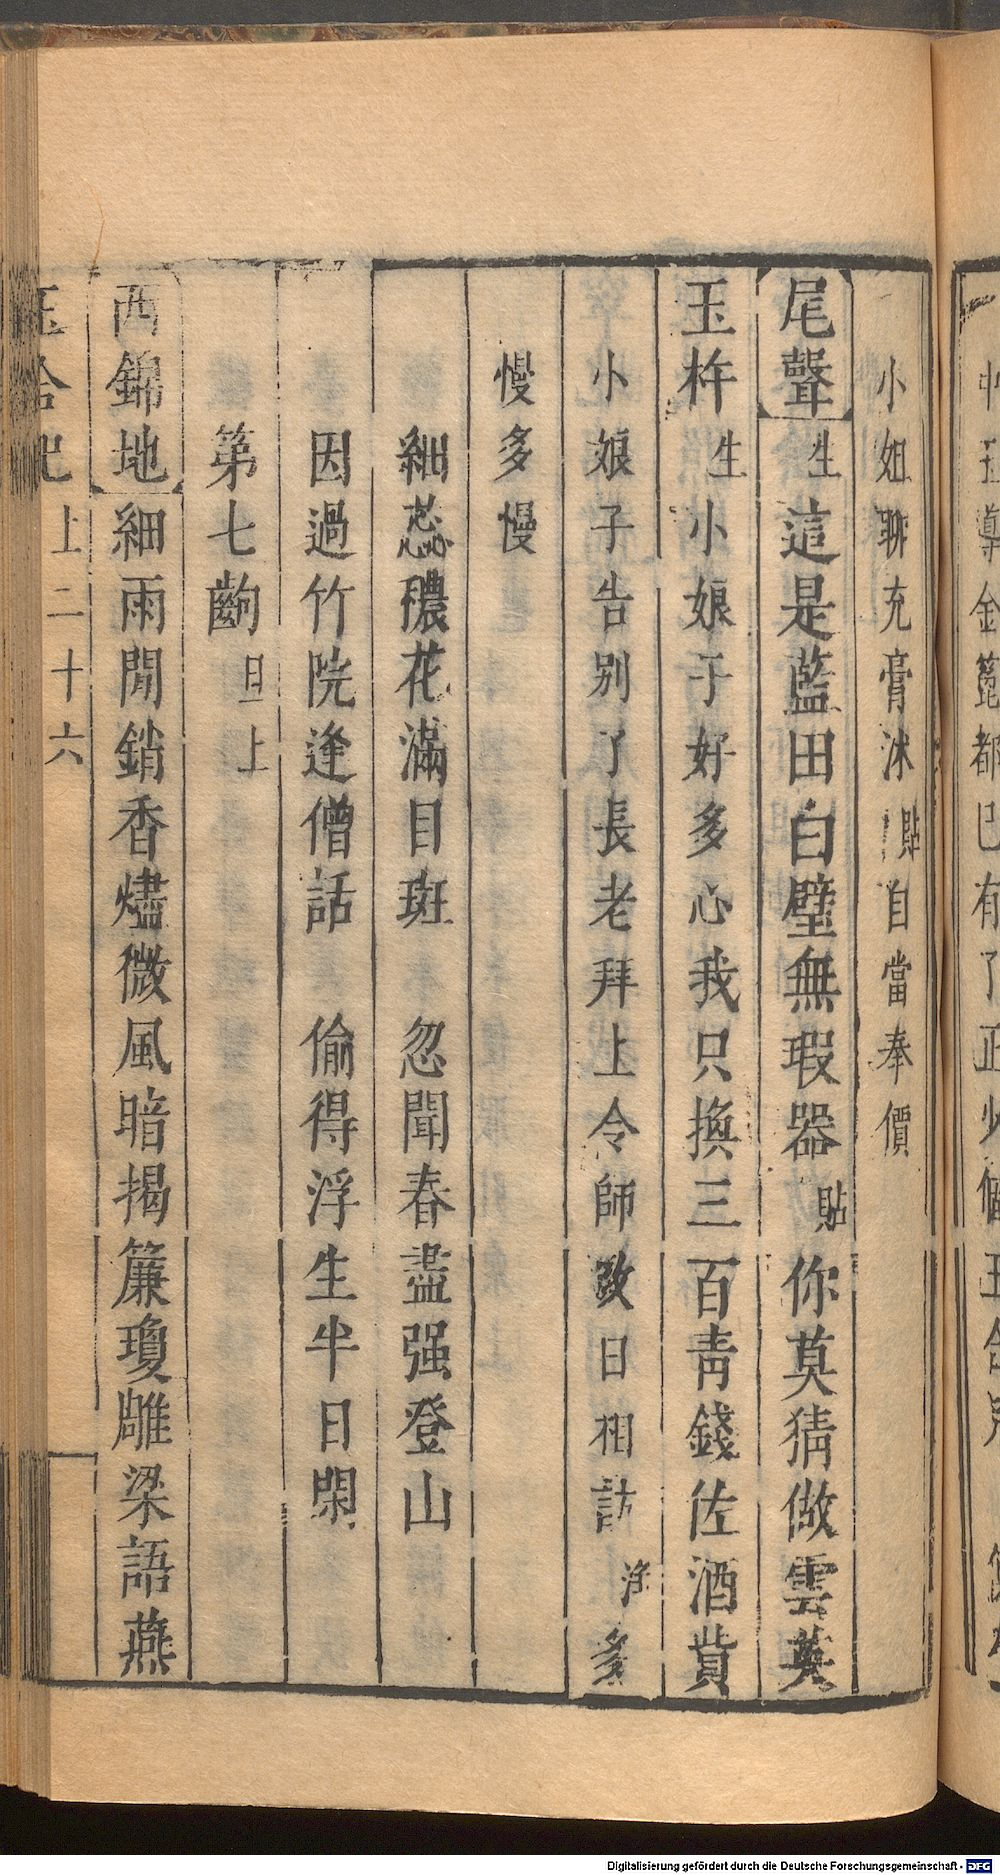 小姐聊充膏沐貼自當奉價
尾聲生這是藍田白璧無瑕器貼你莫猜做雲英
玉杵生小娘子好多心我只換三百靑錢佐酒貲
小娘子告别了長老拜上令師改日相訪淨多
慢多慢
細蕊穠花滿目斑　忽聞春盡强登山
因過竹院逢僧話　偷得浮生半日閑
第七齣旦上
西錦地細雨閒銷香燼微風暗揭簾瓊雕梁語燕
玉合記　上二十六
Digitalisierung gefördert durch die Deutsche Forschungsgemeinschaft - DFG